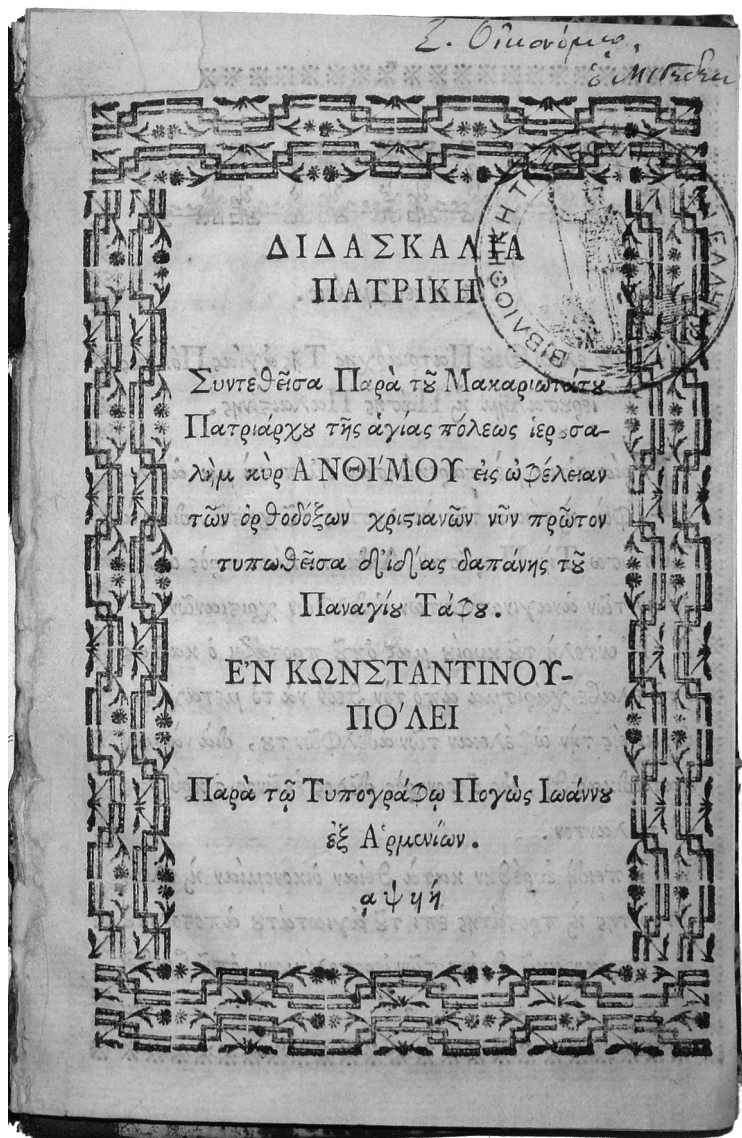 Σ. Οἰκονόμου
ΔΙΔΑΣΚΑΛΙΑ
ΠΑΤΡΙΚΗ
Συντεθεῖσα Παρὰ τȣ͂ Μακαριωτάτȣ
Πατριάρχȣ τῆς αγιας πόλεως ιερȣσα-
λὴμ κὺρ ΑʼΝΘΙʹΜΟΥ εἰς ὠφέλειαν
τῶν ὀρθοδόξων χριϛιανῶν νῦν πρῶτον
τυπωθεῖσα δἰ ἰδίας δαπάνης τȣ͂
Παναγίȣ Τάφȣ.
ΕʼΝ ΚΩΝΣΤΑΝΤΙΝΟΥ-
ΠΟʹΛΕΙ
Παρὰ τῷ Τυπογράφῳ Πογὼς Ιωάννȣ
ἐξ Αʽρμενίων.
͵αψϟή
ΒΙΒΛΙΟΘΗΚΗ